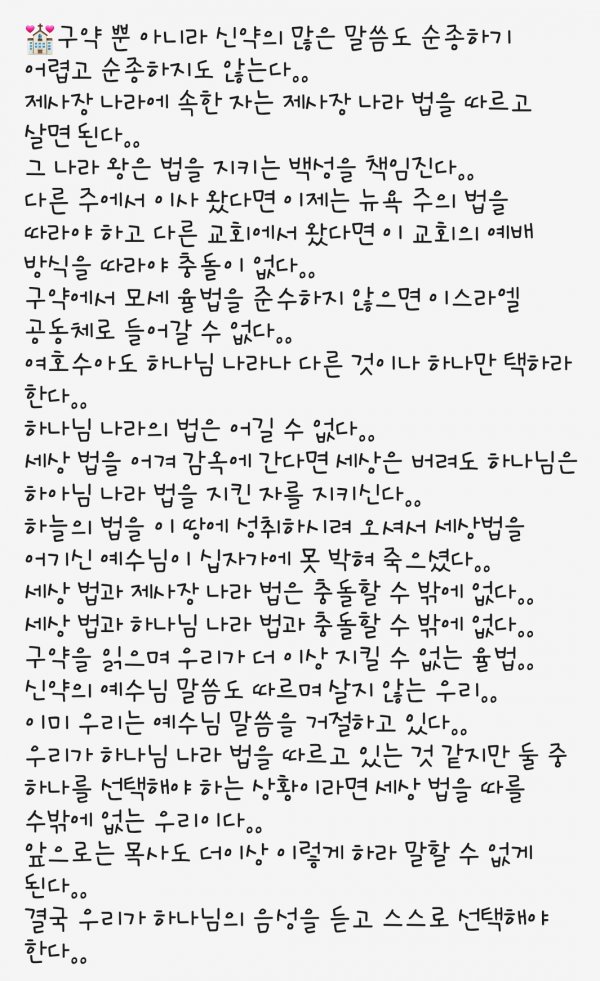 💒구약 뿐 아니라 신약의 많은 말씀도 순종하기
어렵고 순종하지도 않는다。。
제사장 나라에 속한 자는 제사장 나라 법을 따르고
살면 된다。。
그 나라 왕은 법을 지키는 백성을 책임진다。。
다른 주에서 이사 왔다면 이제는 뉴욕 주의 법을
따라야 하고 다른 교회에서 왔다면 이 교회의 예배
방식을 따라야 충돌이 없다。。
구약에서 모세 율법을 준수하지 않으면 이스라엘
공동체로 들어갈 수 없다。。
여호수아도 하나님 나라나 다른 것이나 하나만 택하라
한다。。
하나님 나라의 법은 어길 수 없다。。
세상 법을 어겨 감옥에 간다면 세상은 버려도 하나님은
하아님 나라 법을 지킨 자를 지키신다。。
하늘의 법을 이 땅에 성취하시려 오셔서 세상법을
어기신 예수님이 십자가에 못 박혀 죽으셨다。。
세상 법과 제사장 나라 법은 충돌할 수 밖에 없다。。
세상 법과 하나님 나라 법과 충돌할 수 밖에 없다。。
구약을 읽으며 우리가 더 이상 지킬 수 없는 율법。。
신약의 예수님 말씀도 따르며 살지 않는 우리。。
이미 우리는 예수님 말씀을 거절하고 있다。。
우리가 하나님 나라 법을 따르고 있는 것 같지만 둘 중
하나를 선택해야 하는 상황이라면 세상 법을 따를
수밖에 없는 우리이다。。
앞으로는 목사도 더이상 이렇게 하라 말할 수 없게
된다。。
결국 우리가 하나님의 음성을 듣고 스스로 선택해야
한다。。